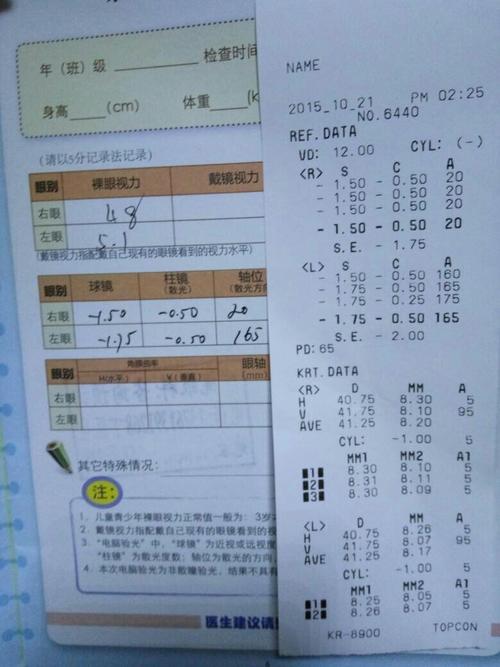 年（班）级 检查时间
身高 (cm) 体重
(请以5分记录法记录)
眼别 裸眼视力 戴镜视力
右眼 4.8
左眼 5.1
(戴镜视力指配戴自己现有的眼镜看到的视力水平)
眼别 球镜 柱镜 (散光) 轴位 (散光方向
右眼 -1.50 -0.50 20
左眼 -1.75 -0.50 165
眼别 角膜曲率 眼轴
H(水平) V(垂直) (mm)
右眼
左眼
其它特殊情况:
注:
1. 儿童青少年裸眼视力正常值一般为: 3岁
2. 戴镜视力指配戴自己现有的眼镜看到的视
3. "电脑验光"中, "球镜"为近视或远视度
"柱镜"为散光度数; 轴位为散光的方向,
4. 本次电脑验光为非散瞳验光, 结果不具有
医生建议请
NAME
2015_10_21 PM 02:25
NO.6440
REF.DATA
VD: 12.00 CYL: (-)
<R> S C A
- 1.50 - 0.50 20
- 1.50 - 0.50 20
- 1.50 - 0.50 20
- 1.50 - 0.50 20
S.E. - 1.75
<L> S C A
- 1.50 - 0.50 160
- 1.75 - 0.50 165
- 1.75 - 0.25 175
- 1.75 - 0.50 165
S.E. - 2.00
PD: 65
KRT.DATA
<R> D MM A
H 40.75 8.30 5
V 41.75 8.10 95
AVE 41.25 8.20
CYL: -1.00 5
MM1 MM2 A1
1 8.30 8.10 5
2 8.31 8.11 5
3 8.30 8.09 5
<L> D MM A
H 40.75 8.26 5
V 41.75 8.07 95
AVE 41.25 8.17
CYL: -1.00 5
MM1 MM2 A1
1 8.25 8.05 5
2 8.26 8.07 5
KR-8900 TOPCON